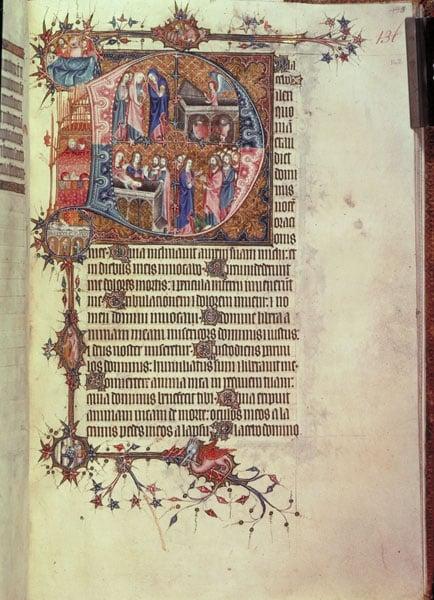 136
Pla
cebo
ilexi
quo
niā
exau
diet
domi
nus
vocē
oraci
onis
mee. Quia inclinavit aurem suam michi: et
in diebus meis invocabo. Circumdederunt
me dolores mortis: et pericula inferni invenerunt
me. Tribulationem et dolorem inveni: et no
men domini invocavi. O domine libera a
nimam meam misericors dominus et iustus:
et deus noster miseretur. Custodiens parvu
los dominus: humiliatus sum et liberavit me.
Convertere anima mea in requiem tuam:
quia dominus benefecit tibi. Quia eripuit
animam meam de morte: oculos meos a la
crimis pedes meos a lapsu. Placebo domino